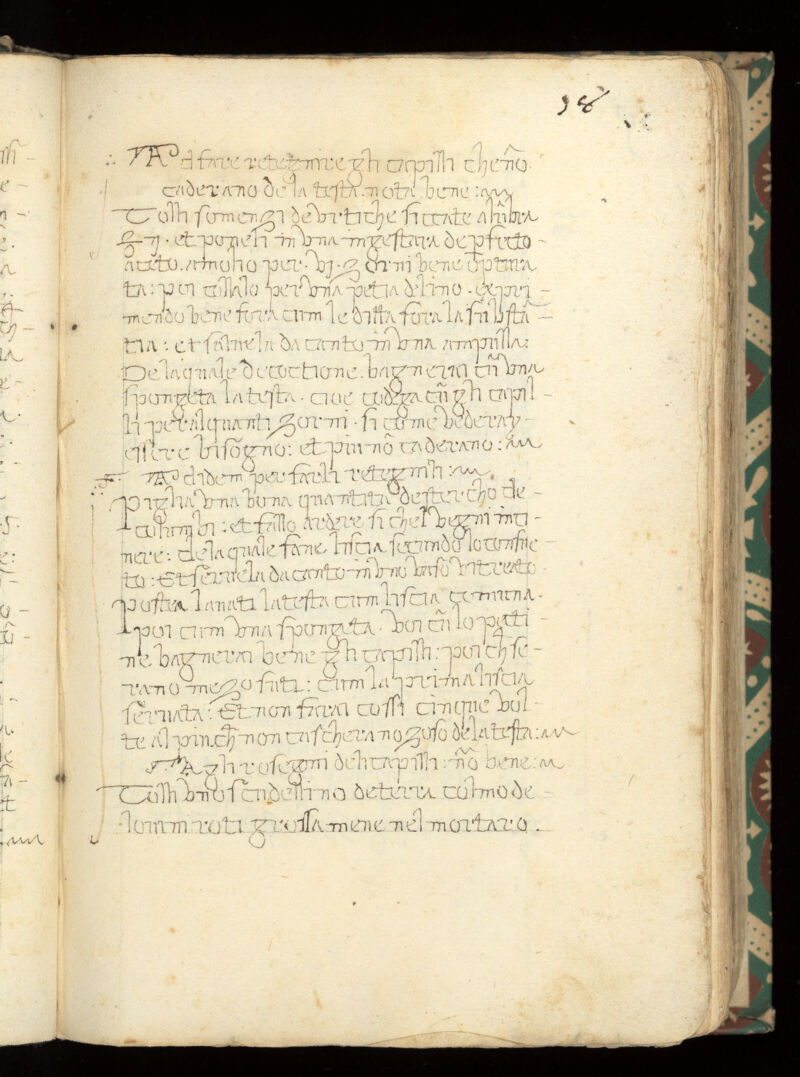 38
Ad fare retegnire gli capilli che nõ
caderano de la testa. nota bene:
Tolli somenzi de vrtiche sicate al'vmbra
et poneli in vna in gestara de pfecto
aceto. a moho per. vj. zorni bene optura
ta: poi collalo per vna petia de lino. expri
mendo bene fora cum le ditta fora la sũ bstã
tia: et salvela da canto in vna ampulla:
De la quale decoctione. bagnerai cũ vna
spongeta la testa. cioe codega cũ gli capil
li per alquanti zorni. si come vederay
essere bisõgno: et piu nõ caderano:
Ad idem per farli retegnili:
Piglia vna bona quantita de stercho de
columbi: et fallo ardere si chel vegni in ci
nere: de la quale fane liscia secundo lo consue
to: Et servela da canto in vno vaso vitreato.
postea lanati la testa cum liscia comuna.
poi cum vna spongeta. voi cũ lo pecti
ne bagnerai bene gli capilli: poi ch se
rano mezo suti: cum la prima liscia
servata: Et non farai cossi cinque vol
te al piu. ch non caschera no zoso de la testa:
A gli rosegni deli capilli: nõ bene:
Tolli vno scudellino de terra colmo de
lou in roti grossa mene nel mortaro.